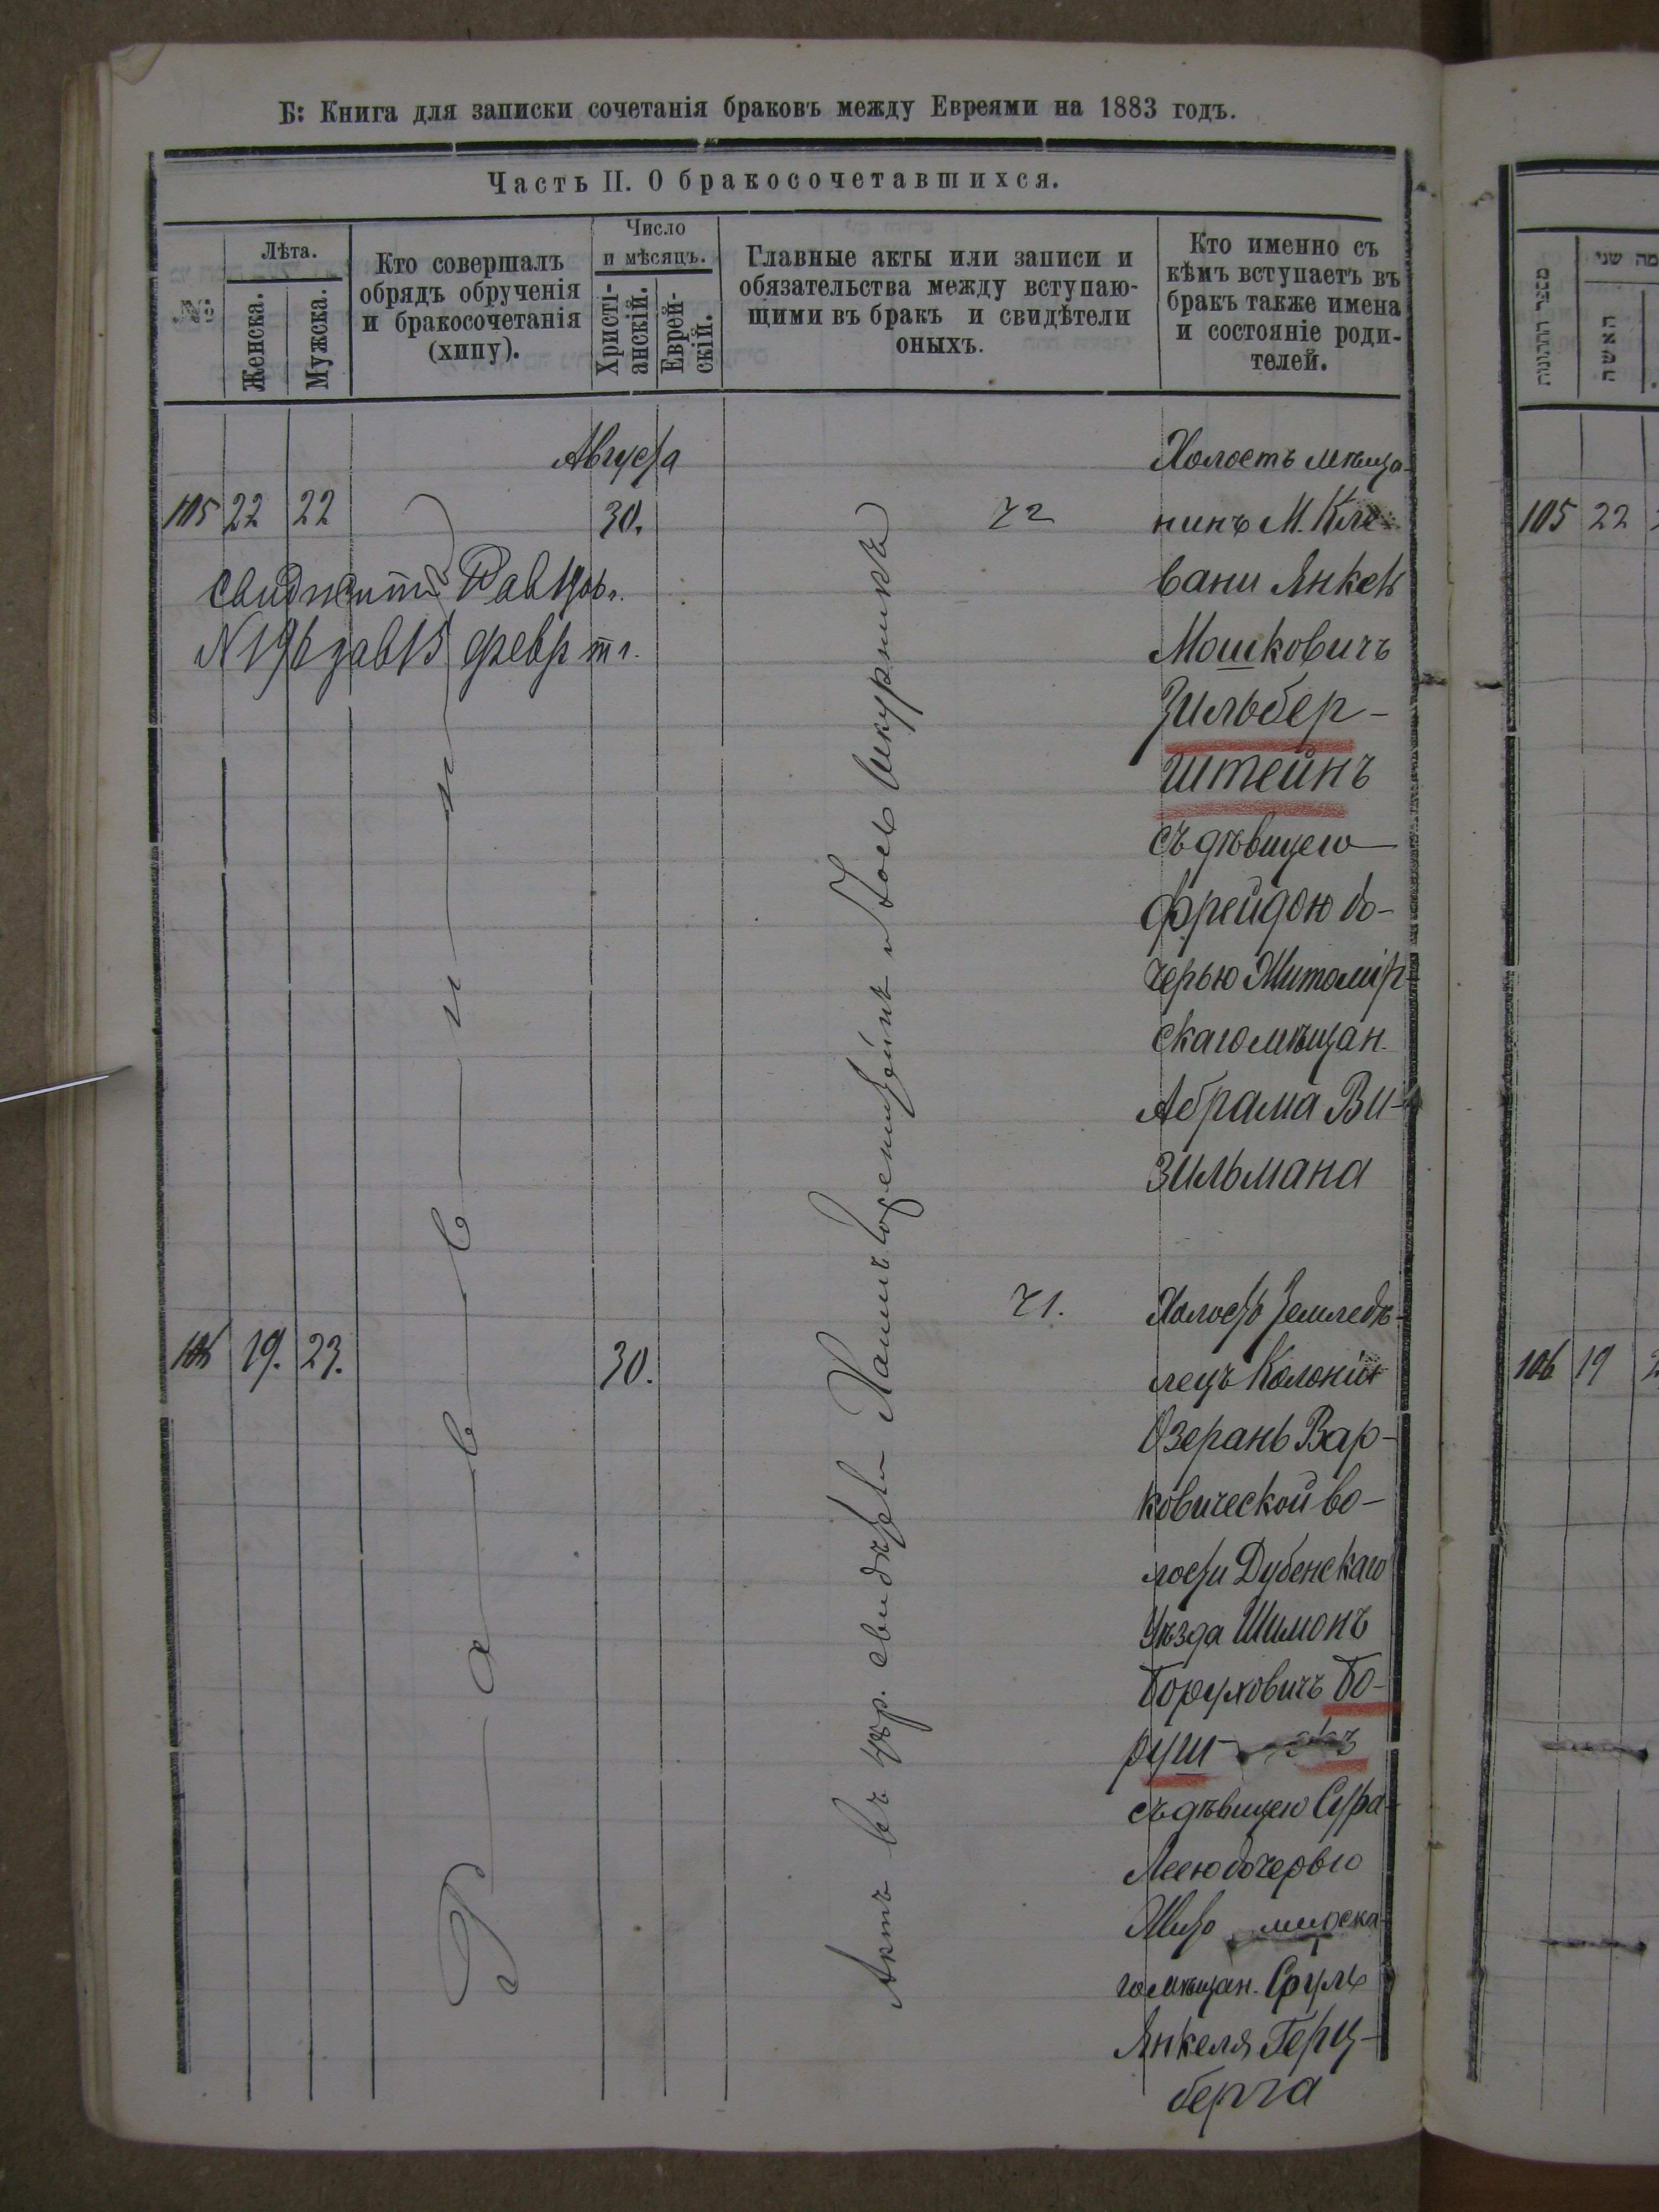 Б: Книга для записки сочетанія браковъ между Евреями на 1883 годъ.
Часть II. О бракосочетавшихся.
№
Лѣта.
Женска.
Мужска.
Кто совершалъ
обрядъ обрученія
и бракосочетанія
(хппу).
Число
и мѣсяцъ.
Христі-
анскій.
Еврей-
скій.
Главные акты или записи и
обязательства между вступаю-
щими въ бракъ и свидѣтели
оныхъ.
Кто именно съ
кѣмъ вступаетъ въ
бракъ также имена
и состояніе роди-
телей.
Августа
105 22 22 30. 72
N 196 15 февр тг.
Холостъ мѣща-
нинъ М. Кле-
вани Янкель
Мошковичъ
Зильбер-
штейнъ
съ дѣвицею
Фрейдою до-
черью Житомір
скаго мѣщан.
Абрама Ви-
зильмана
106 19. 23. 30. 71.
Холостъ Земледѣ-
лецъ Колоніи
Озерань Вар-
ковической во-
лости Дубенскаго
Уѣзда Шимонъ
Боруховичъ Бо-
руш
съ дѣвицею Сура
Леею дочерью
Жито мирска-
го мѣщан. Сруль
Янкеля Герц-
берга
Р а в в и н
Актъ въ чер. свидѣтели Хаимъ и Иосъ Шкурникъ
מספר החתונות
מה שני
האשה
105 22
106 19